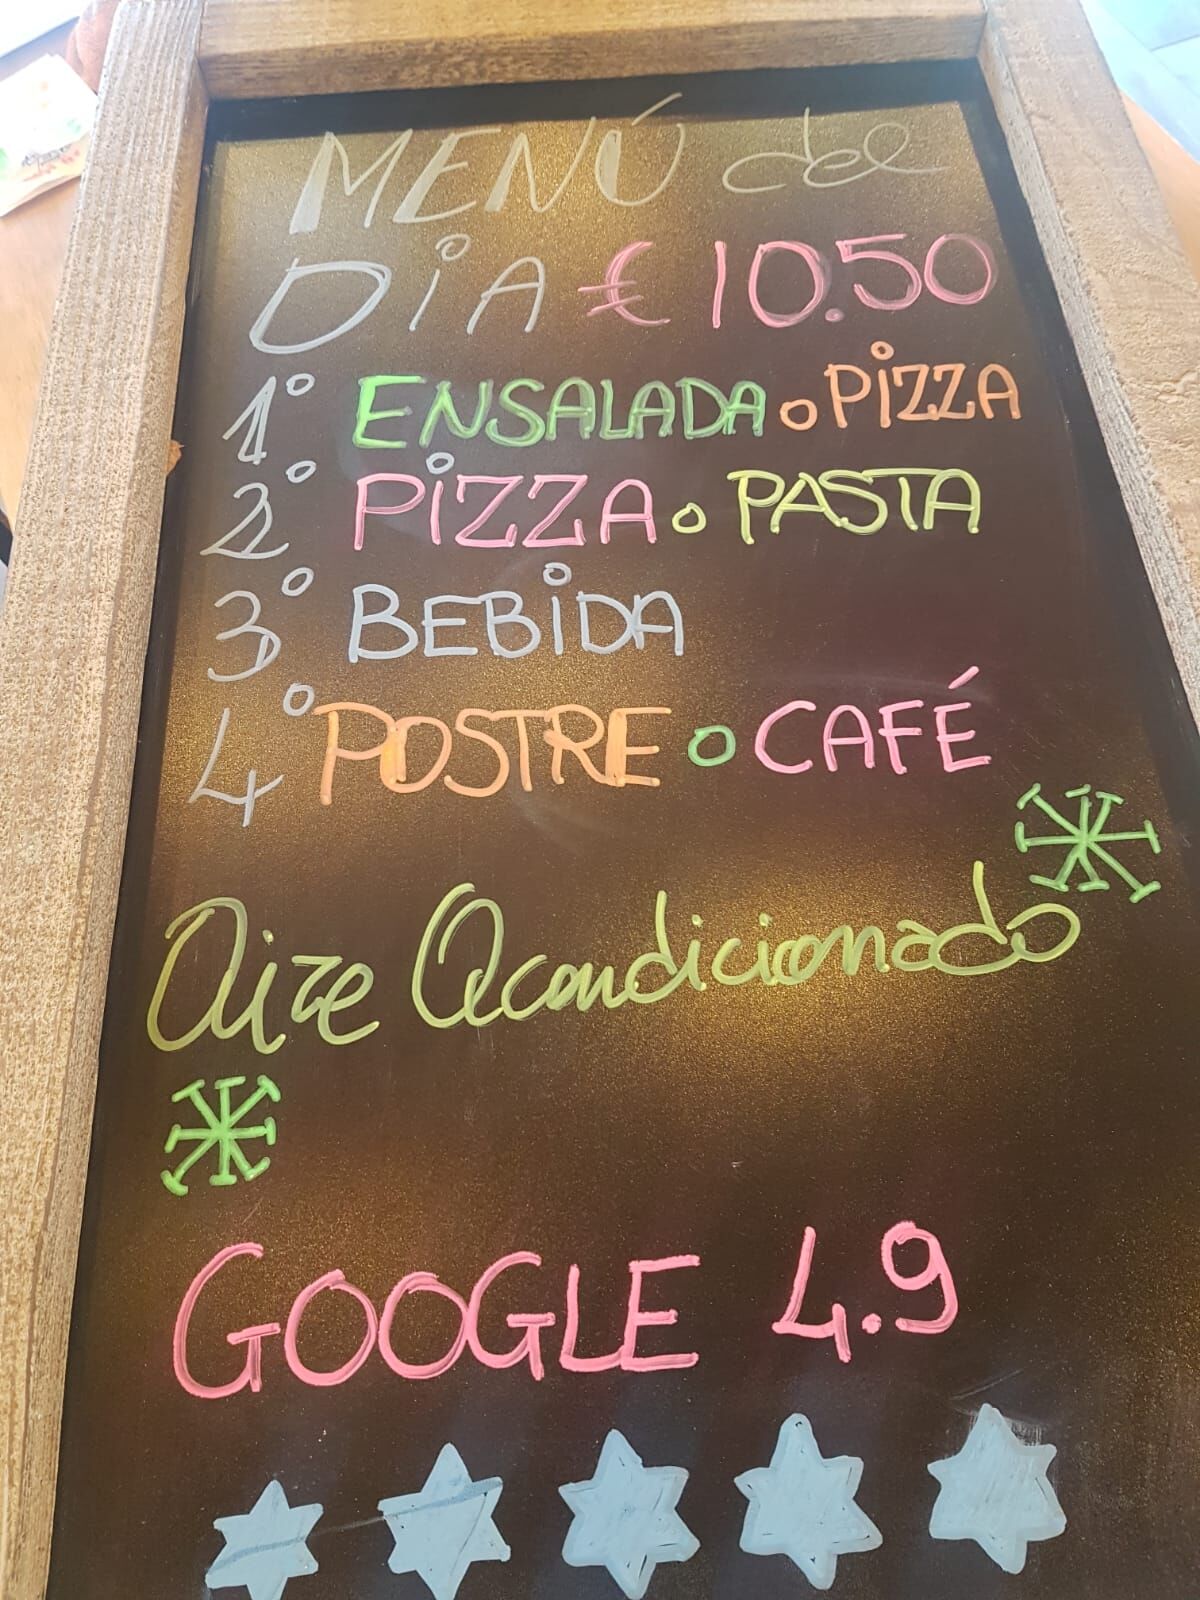 MENÚ del
DiA € 10.50
1° ENSALADA o PiZZA
2° PiZZA o PASTA
3° BEBiDA
4° POSTRE o CAFÉ
Aire Acondicionado
GOOGLE 4.9